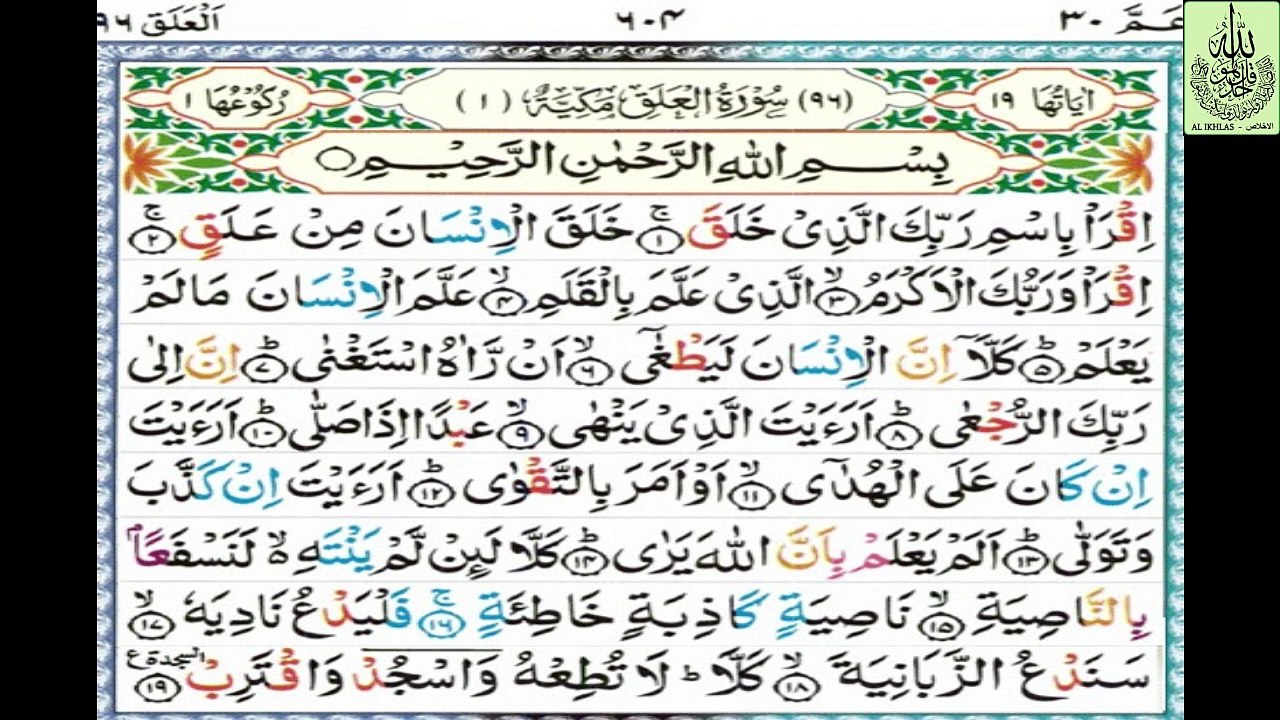 عَمَّ ٣٠
٦٠٤
اَلْعَلَق ٩٦
اٰيَاتُهَا ١٩
(٩٦) سُوْرَةُ الْعَلَقِ مَكِّيَّةٌ (١)
رُكُوْعُهَا ١
بِسْمِ اللّٰهِ الرَّحْمٰنِ الرَّحِيْمِ
اِقْرَاْ بِاسْمِ رَبِّكَ الَّذِىْ خَلَقَ ۚ ١ خَلَقَ الْاِنْسَانَ مِنْ عَلَقٍ ۚ ٢
اِقْرَاْ وَرَبُّكَ الْاَكْرَمُ ۙ ٣ الَّذِىْ عَلَّمَ بِالْقَلَمِ ۙ ٤ عَلَّمَ الْاِنْسَانَ مَا لَمْ
يَعْلَمْ ؕ ٥ كَلَّاۤ اِنَّ الْاِنْسَانَ لَيَطْغٰٓى ۙ ٦ اَنْ رَّاٰهُ اسْتَغْنٰى ؕ ٧ اِنَّ اِلٰى
رَبِّكَ الرُّجْعٰى ؕ ٨ اَرَءَيْتَ الَّذِىْ يَنْهٰى ۙ ٩ عَبْدًا اِذَا صَلّٰى ؕ ١٠ اَرَءَيْتَ
اِنْ كَانَ عَلَى الْهُدٰٓى ۙ ١١ اَوْ اَمَرَ بِالتَّقْوٰى ؕ ١٢ اَرَءَيْتَ اِنْ كَذَّبَ
وَتَوَلّٰى ؕ ١٣ اَلَمْ يَعْلَمْ بِاَنَّ اللّٰهَ يَرٰى ؕ ١٤ كَلَّا لَئِنْ لَّمْ يَنْتَهِ ۙ لَنَسْفَعًاۢ
بِالنَّاصِيَةِ ۙ ١٥ نَاصِيَةٍ كَاذِبَةٍ خَاطِئَةٍ ۚ ١٦ فَلْيَدْعُ نَادِيَهٗ ۙ ١٧
سَنَدْعُ الزَّبَانِيَةَ ۙ ١٨ كَلَّا ؕ لَا تُطِعْهُ وَاسْجُدْ وَاقْتَرِبْ السجدة ع ١٩
AL IKHLAS - الاخلاص